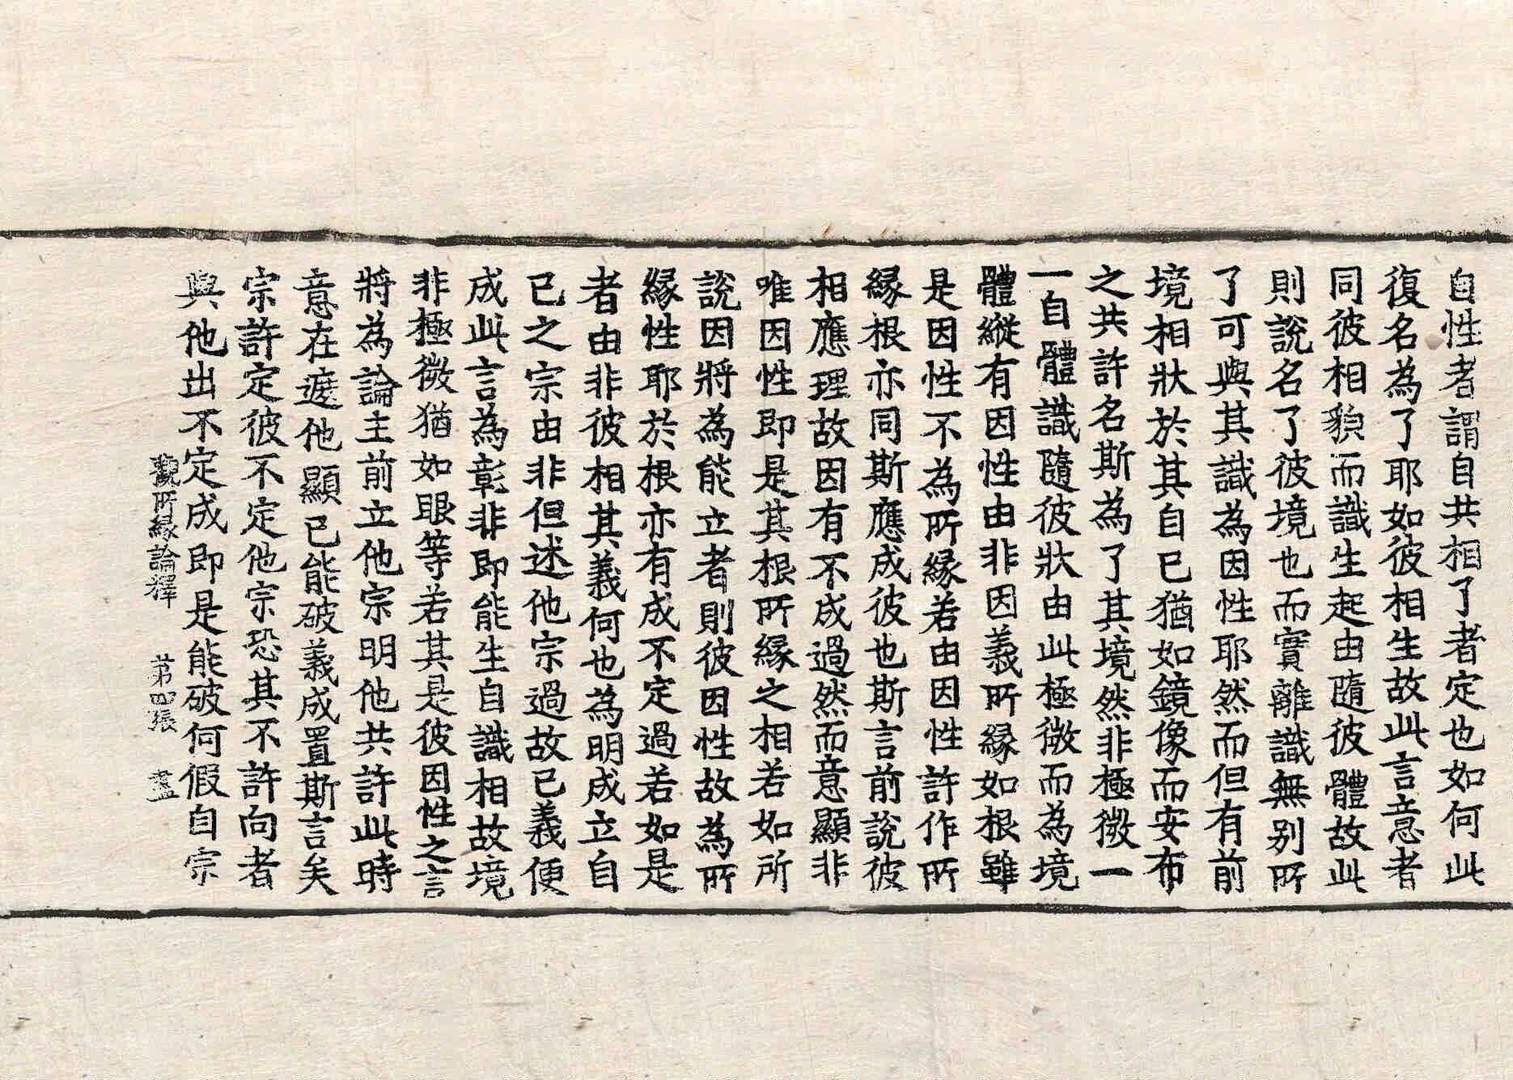 自性者謂自共相了者定也如何此
復名為了耶如彼相生故此言意者
同彼相貌而識生起由隨彼體故此
則說名了彼境也而實離識無别所
了可與其識為因性耶然而但有前
境相狀於其自已猶如鏡像而安布
之共許名斯為了其境然非極微一
一自體識隨彼狀由此極微而為境
體縱有因性由非因義所縁如根雖
是因性不為所縁若由因性許作所
縁根亦同斯應成彼也斯言前說彼
相應理故因有不成過然而意顯非
唯因性即是其根所縁之相若如所
說因將為能立者則彼因性故為所
縁性耶於根亦有成不定過若如是
者由非彼相其義何也為明成立自
已之宗由非但述他宗過故已義便
成此言為彰非即能生自識相故境
非極微猶如眼等若其是彼因性之言
將為論主前立他宗明他共許此時
意在遮他顯已能破義成置斯言矣
宗許定彼不定他宗恐其不許向者
與他出不定成即是能破何假自宗
觀所縁論釋 第四張 盡